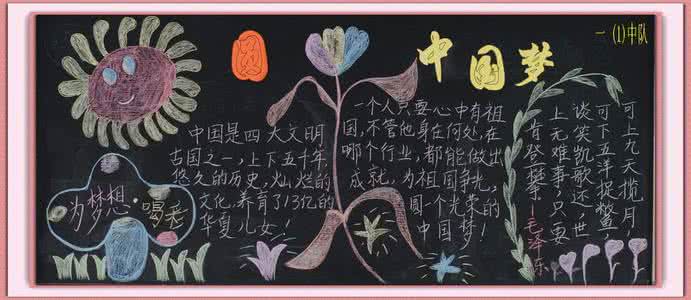 圆 中国梦
一(1)中队
中国是四大文明
古国之一,上下五千年
悠久的历史,灿烂的
文化,养育了13亿的
华夏儿女!
为梦想·喝彩
一个人只要心中有祖
国,不管他身在何处,在
哪个行业,都能做出
成就,为祖国争光,
圆一个光荣的
中国梦!
可上九天揽月,
可下五洋捉鳖,
谈笑凯歌还,世
上无难事,只要
肯登攀—毛泽东